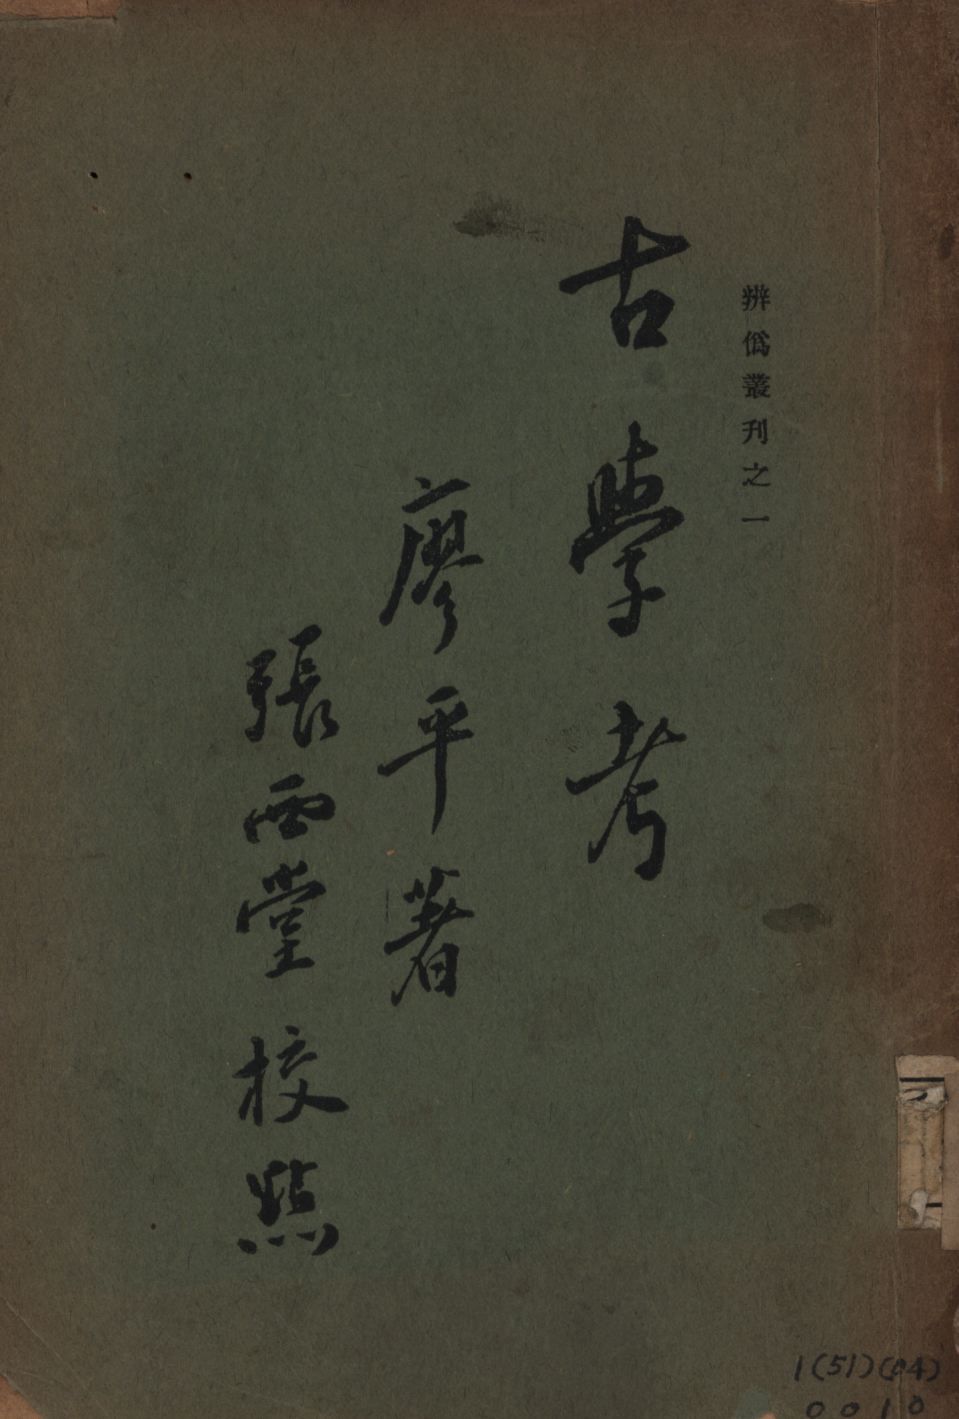 辨僞叢刊之一
古學考
廖平著
張西堂校點
1(51)(04)
0010